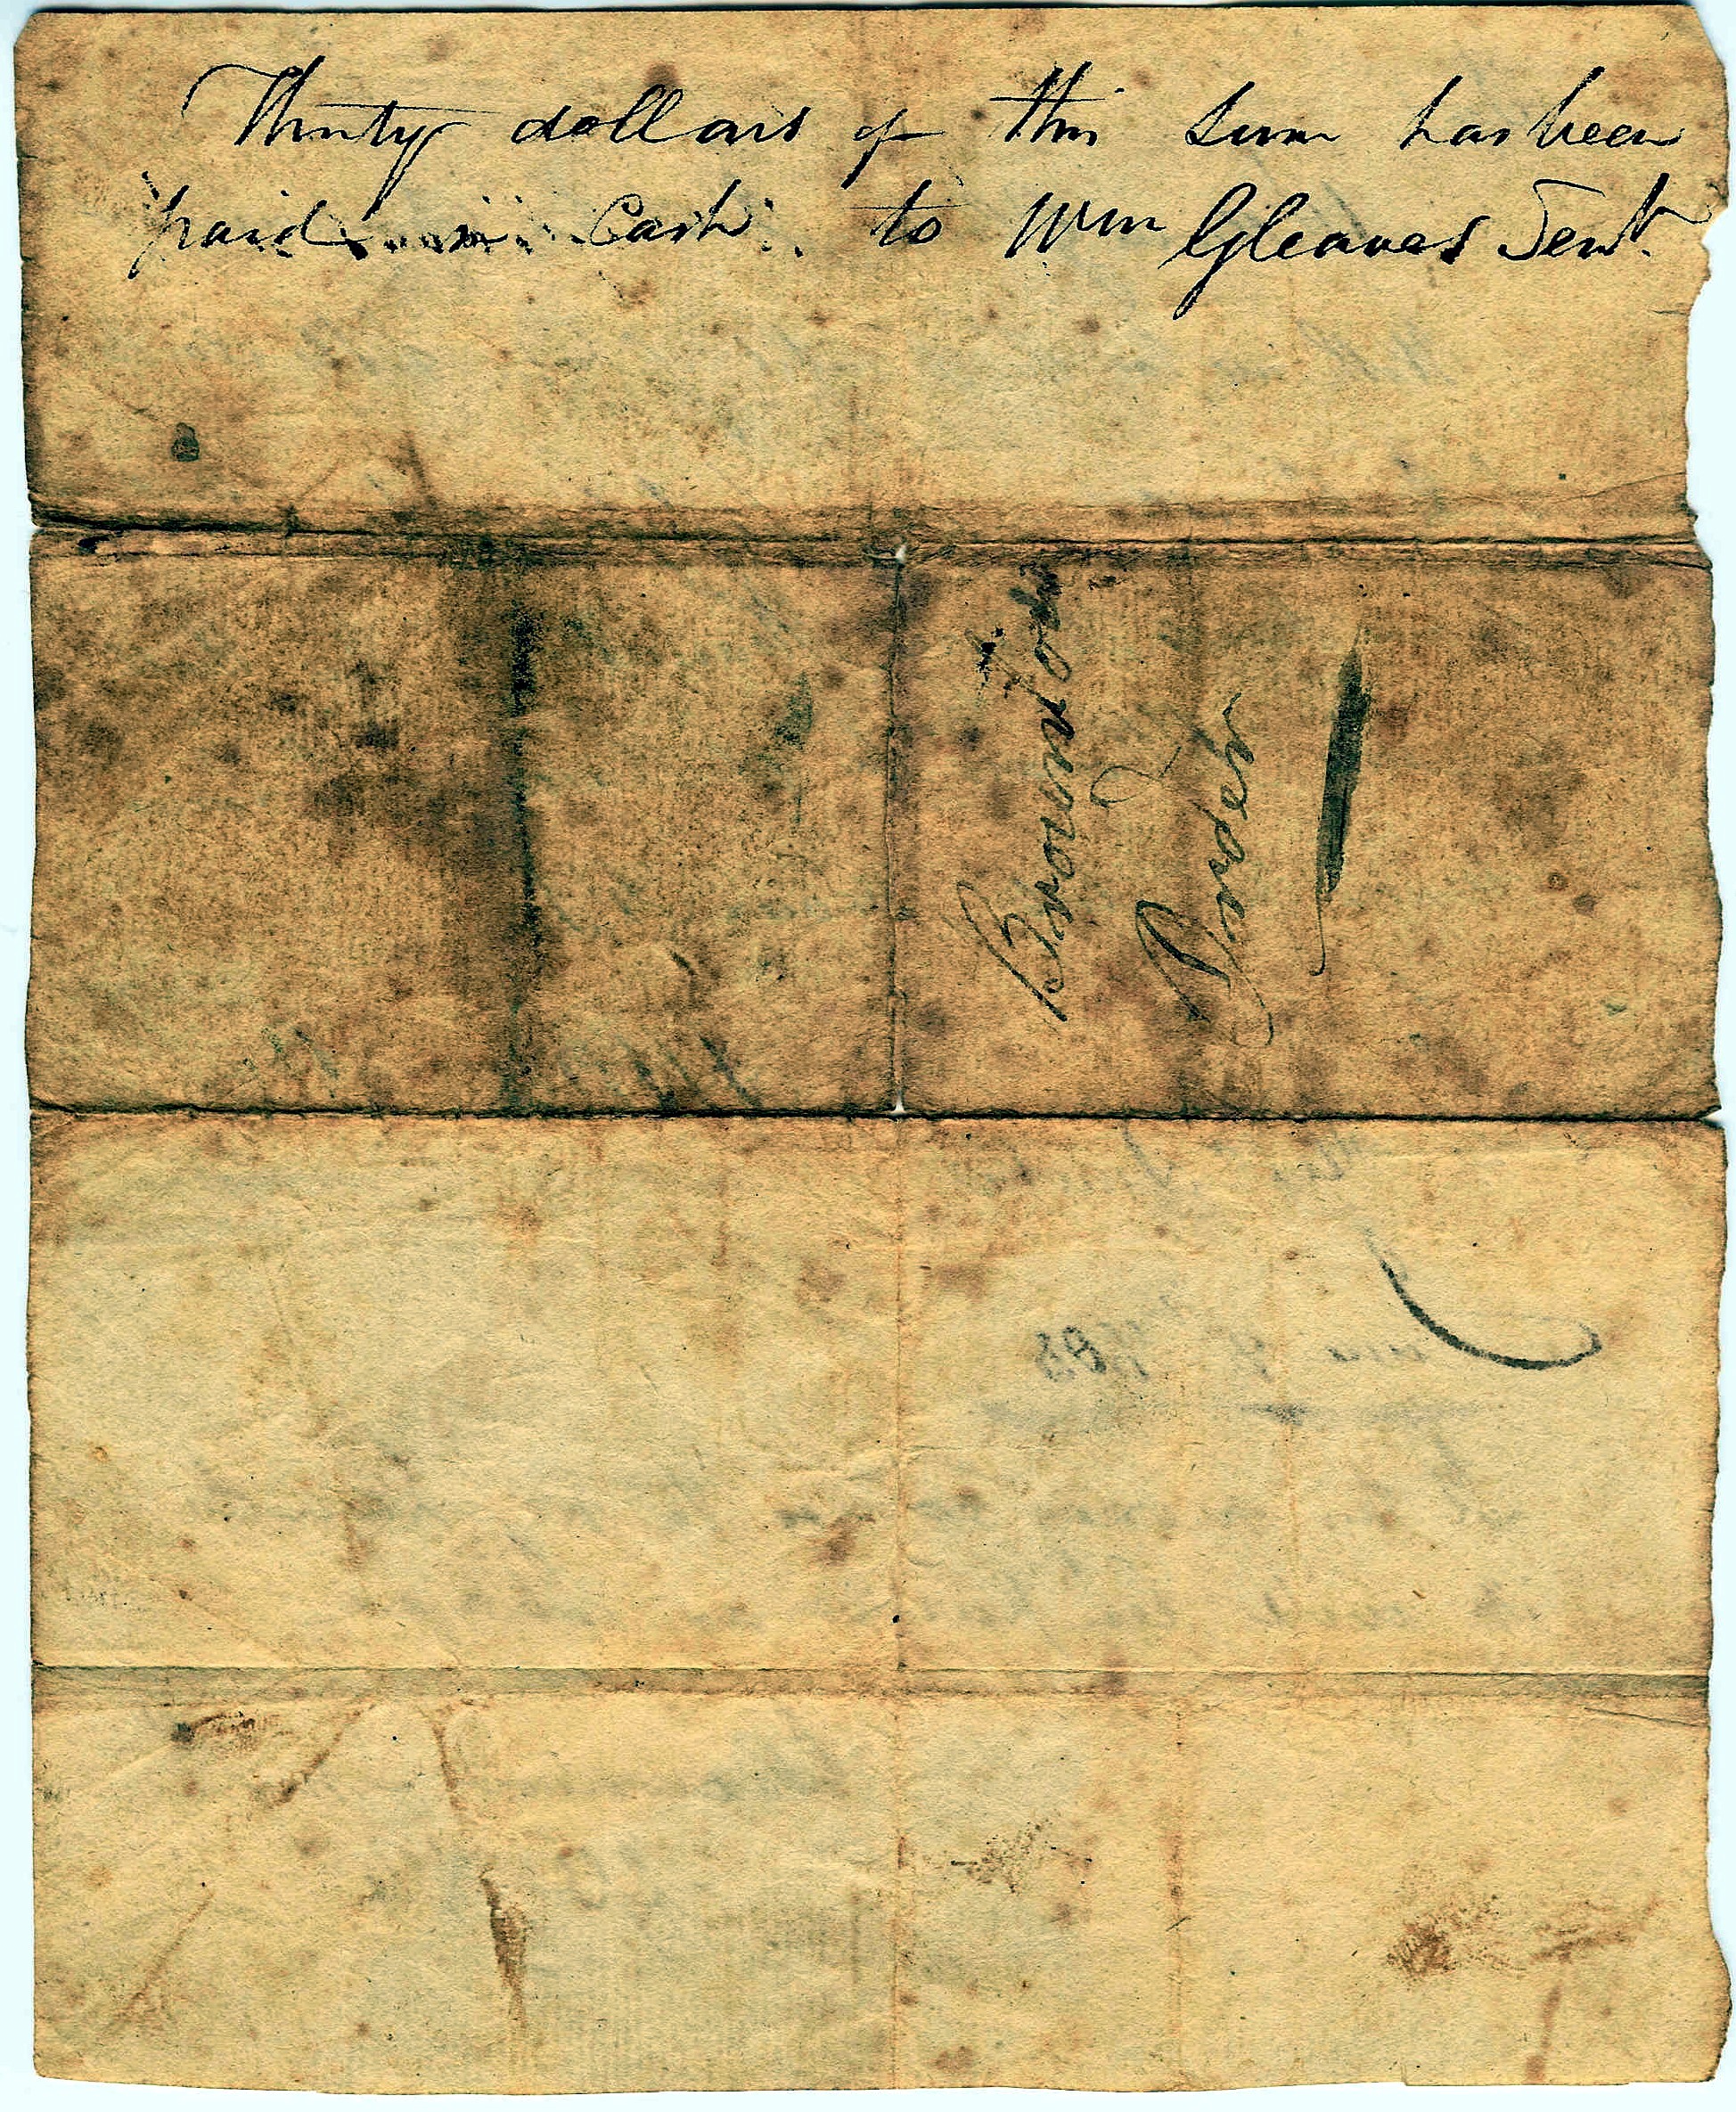 Thirty dollars of this sum has been
paid in Cash to Wm Gleaves Senr.
Brownlow
Order